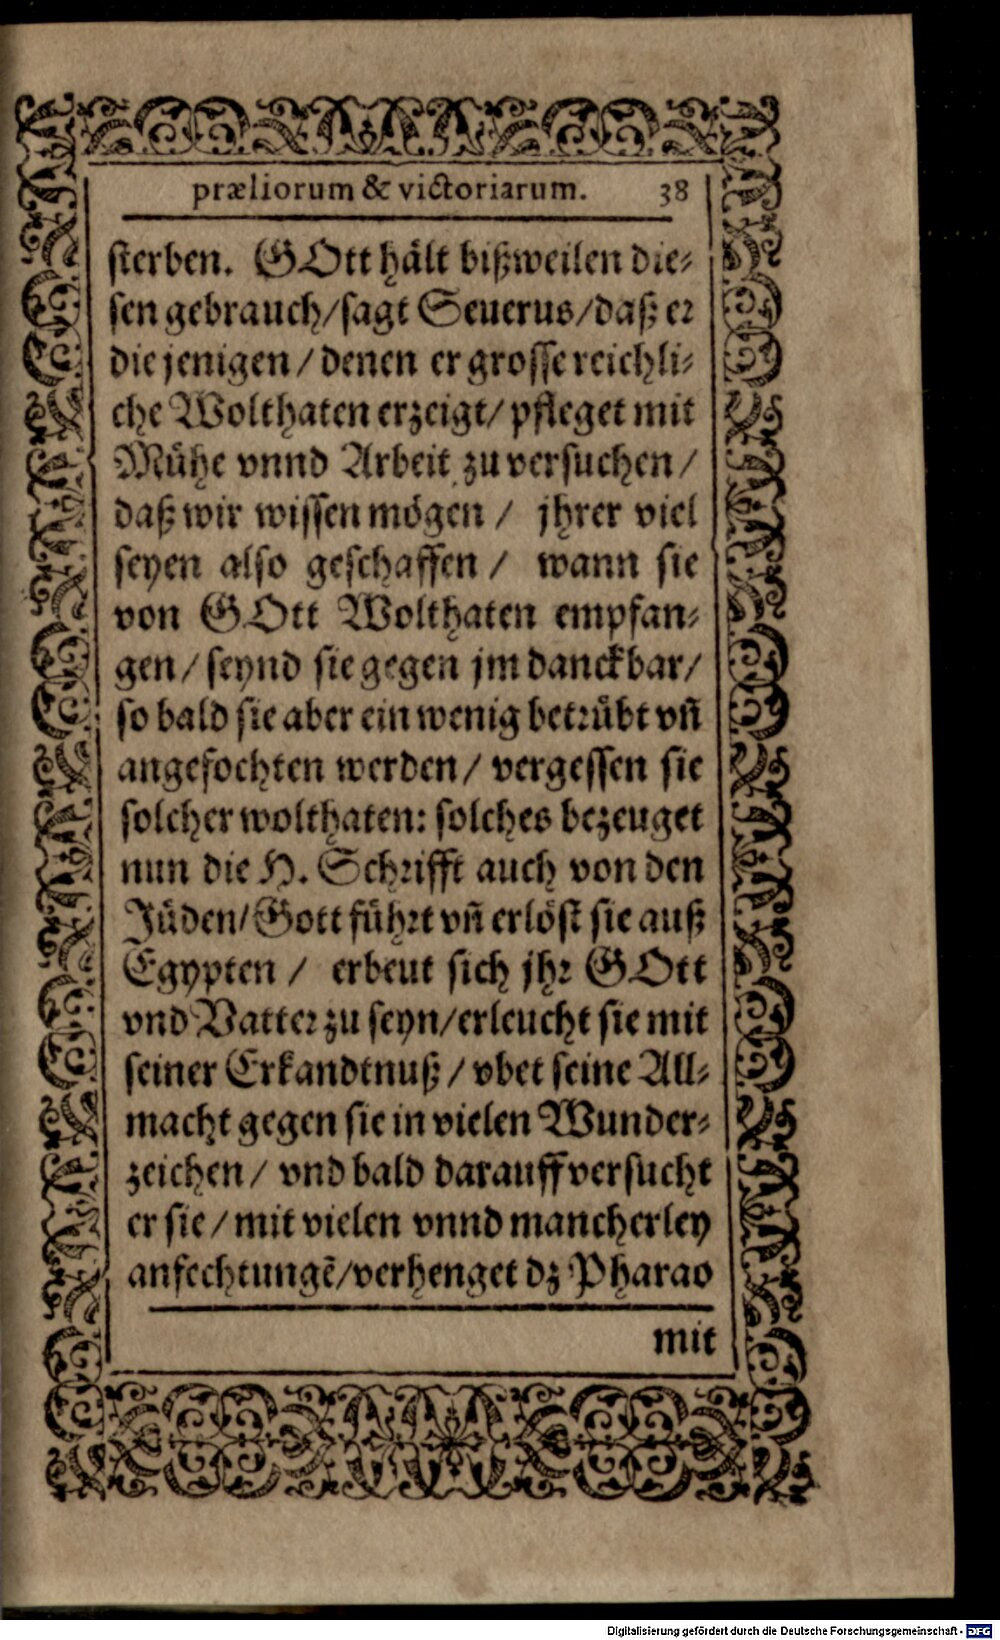 præliorum & victoriarum. 38
sterben. GOtt hält bißweilen die⸗
sen gebrauch/sagt Seuerus/daß er
die jenigen/denen er grosse reichli⸗
che Wolthaten erzeigt/pfleget mit
Mühe vnnd Arbeit zu versuchen/
daß wir wissen mögen/ jhrer viel
seyen also geschaffen/ wann sie
von GOtt Wolthaten empfan⸗
gen/seynd sie gegen jm danckbar/
so bald sie aber ein wenig betrübt vñ
angefochten werden/vergessen sie
solcher wolthaten: solches bezeuget
nun die H. Schrifft auch von den
Jüden/Gott führt vñ erlöst sie auß
Egypten/ erbeut sich jhr GOtt
vnd Vatter zu seyn/erleucht sie mit
seiner Erkandtnuß/vbet seine All⸗
macht gegen sie in vielen Wunder⸗
zeichen/vnd bald darauff versucht
er sie/mit vielen vnnd mancherley
anfechtungẽ/verhenget dz Pharao
mit
Digitalisierung gefördert durch die Deutsche Forschungsgemeinschaft - DFG